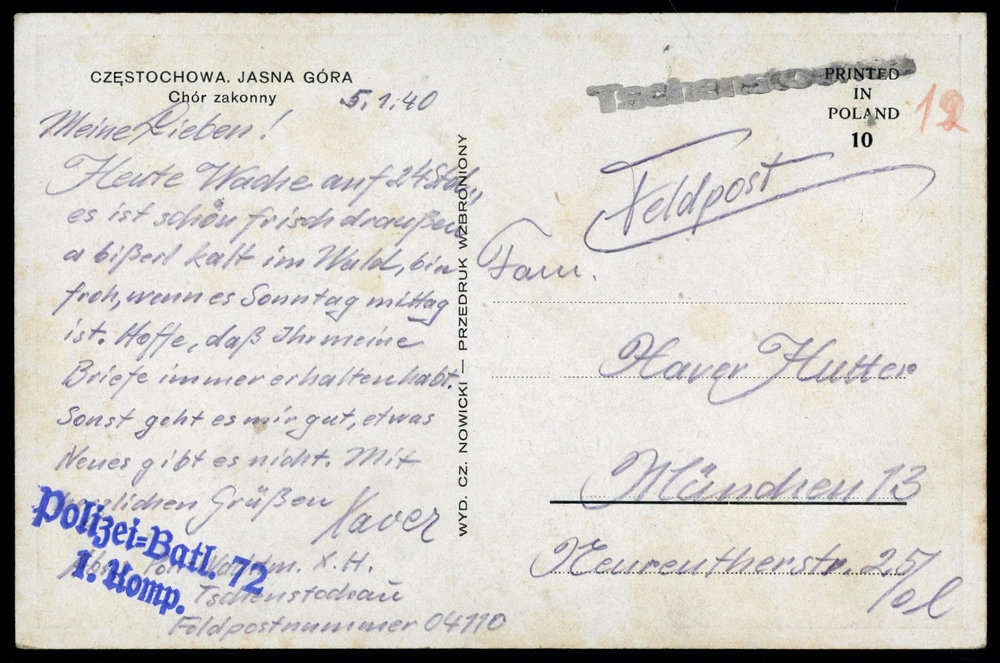 CZĘSTOCHOWA. JASNA GÓRA
Chór zakonny
5.1.40
Meine Lieben!
Heute Wache auf 24 Std.,
es ist schön frisch draußen
a bißerl kalt im Wald, bin
froh, wenn es Sonntag mittag
ist. Hoffe, daß Ihr meine
Briefe immer erhalten habt.
Sonst geht es mir gut, etwas
Neues gibt es nicht. Mit
herzlichen Grüßen
Xaver
Polizei=Batl. 72
1. Komp.
X. H.
Tschenstochau
Feldpostnummer 04110
WYD. CZ. NOWICKI — PRZEDRUK WZBRONIONY
PRINTED
IN
POLAND
10
12
Feldpost
Fam.
Xaver Hutter
München 13
Neureutherstr. 25/